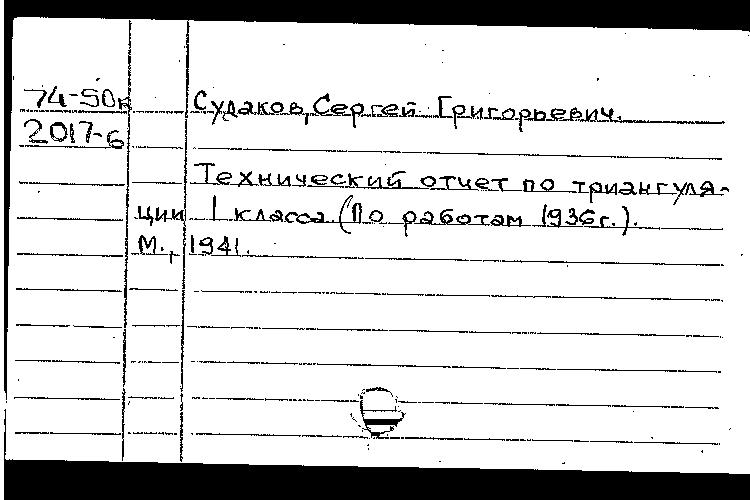 74-50к
Судаков, Сергей Григорьевич.
2017-6
Технический отчет по триангуля-
ции I класса. (По работам 1936г.).
М., 1941.